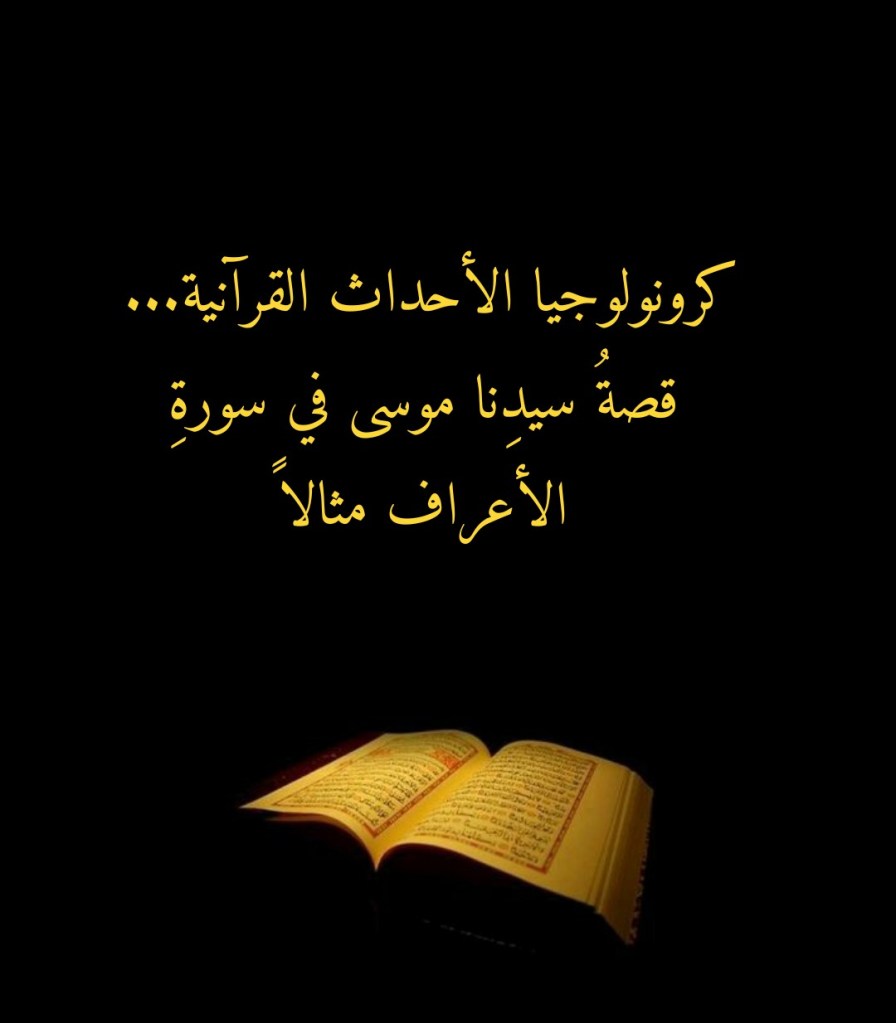 كرونولوجيا الأحداث القرآنية...
قصةُ سيدِنا موسى في سورةِ
الأعراف مثالاً